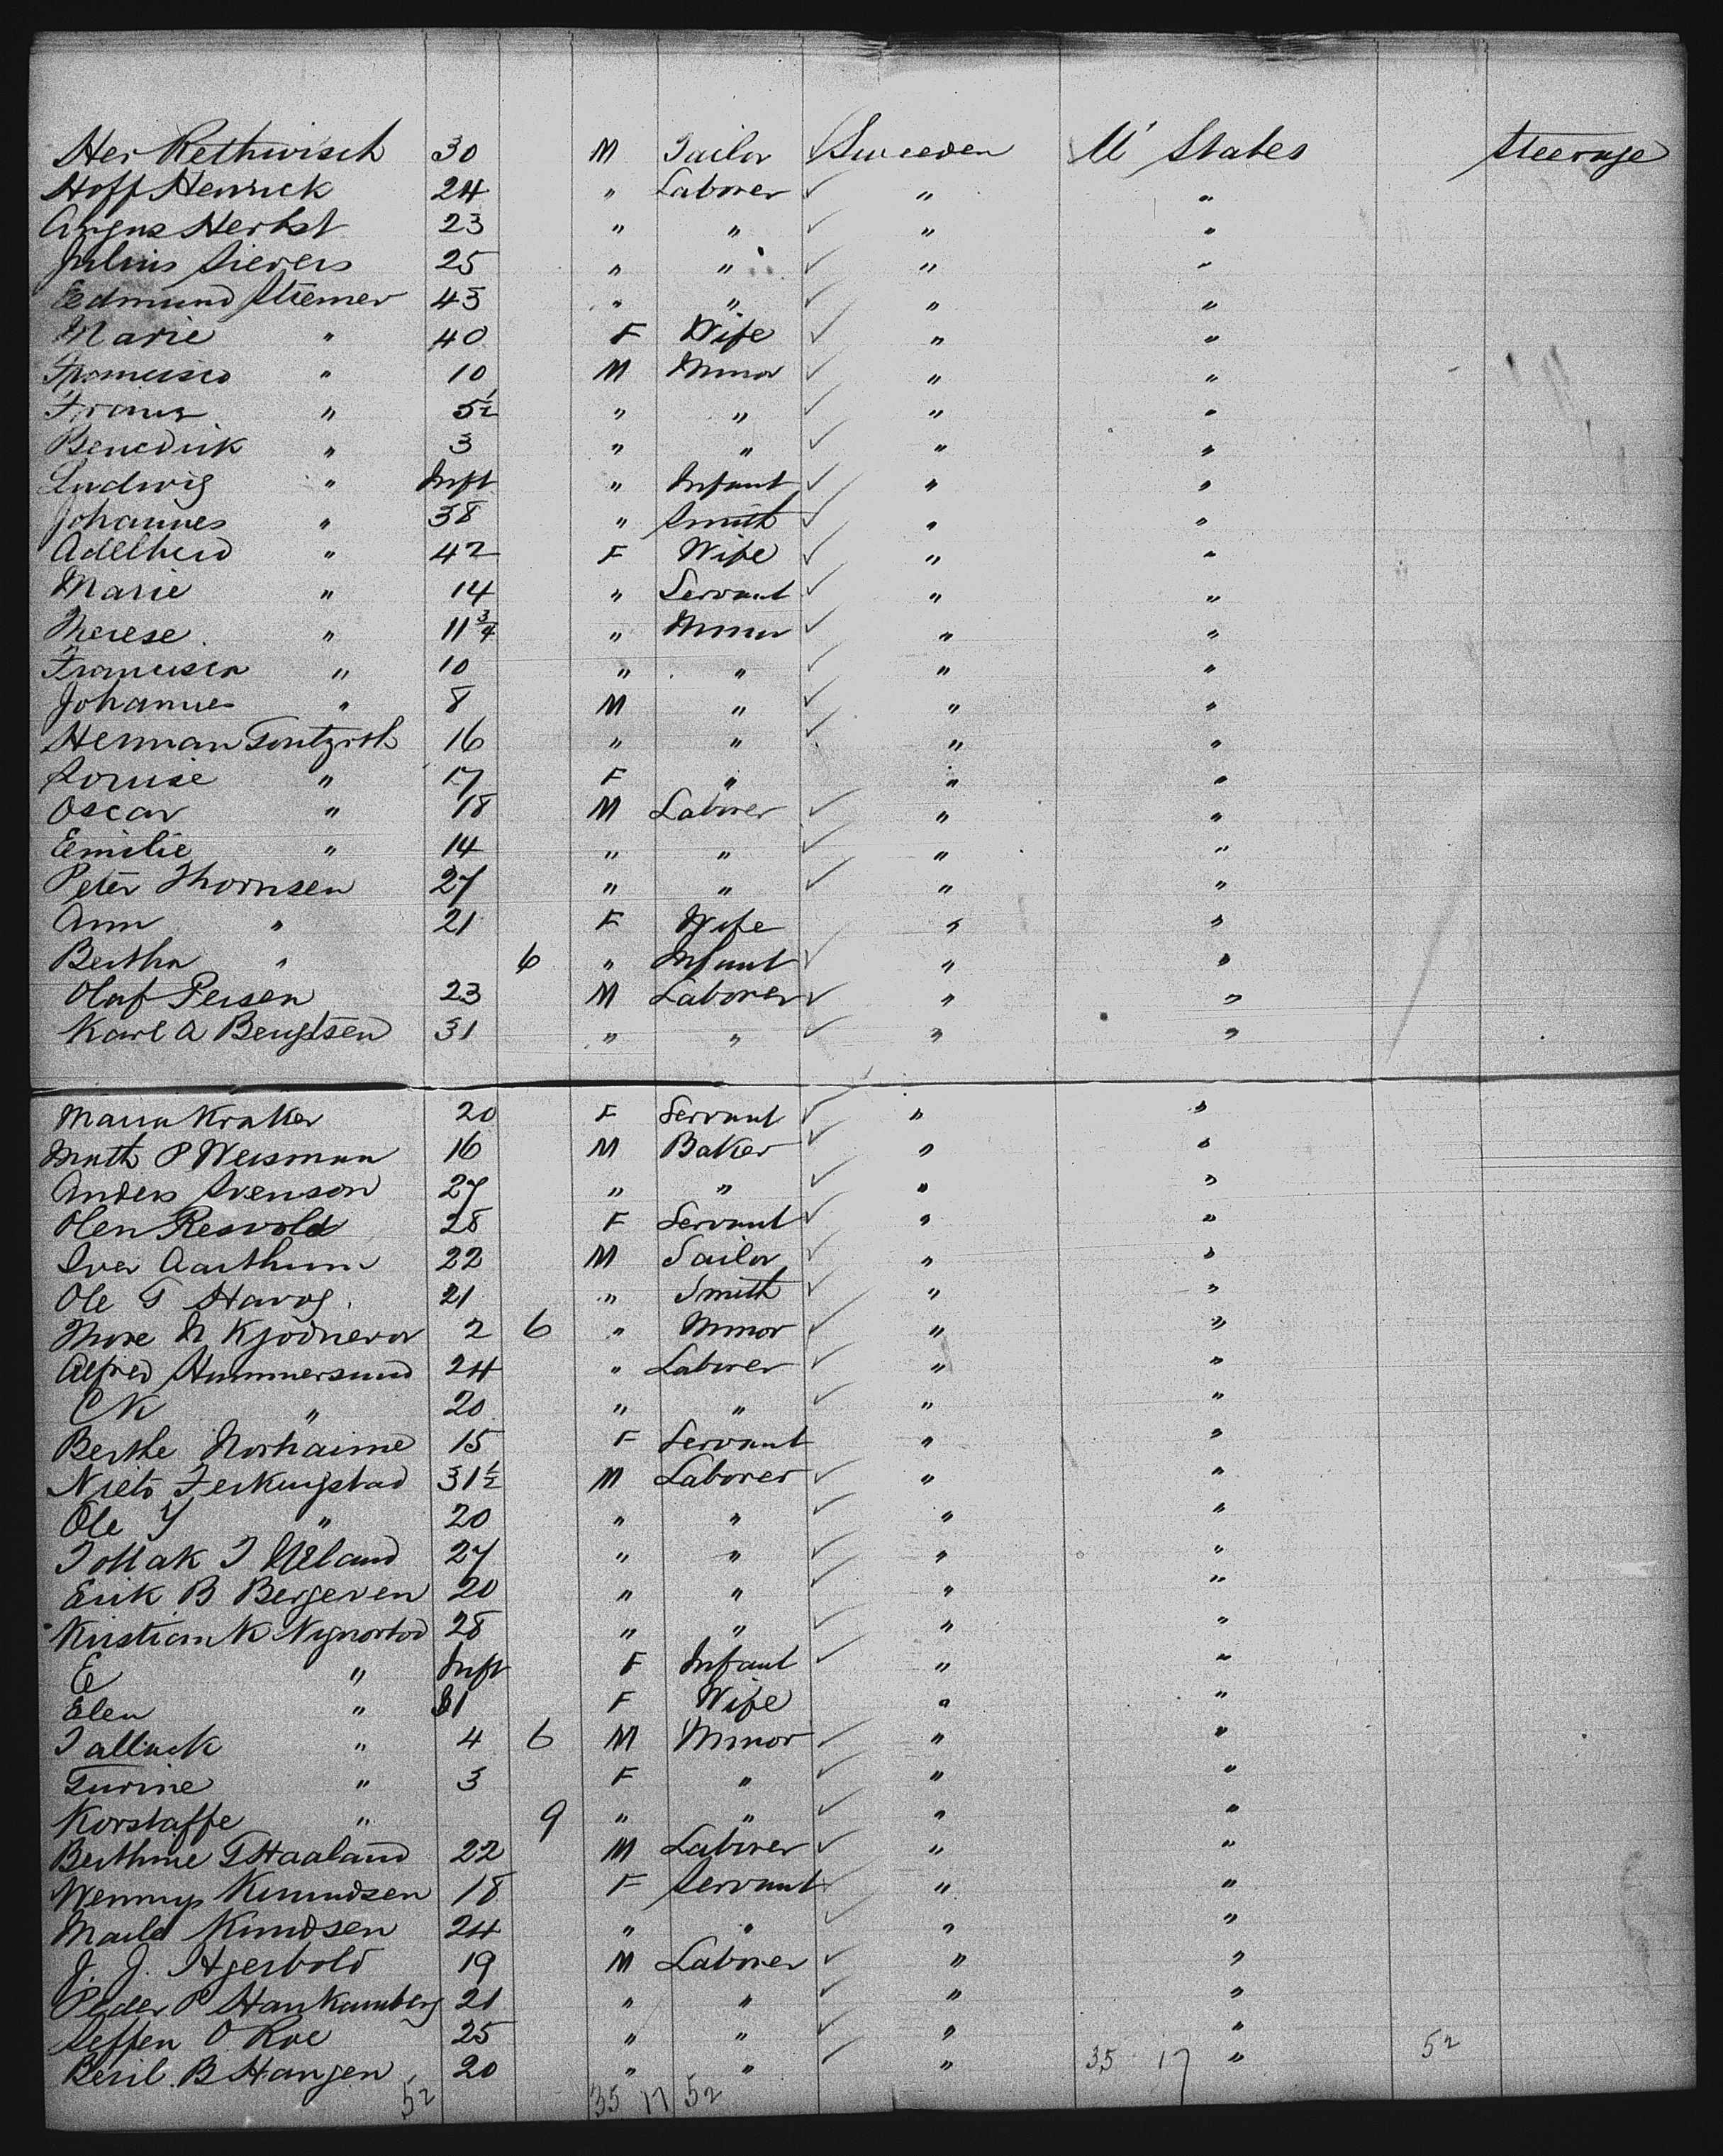 Her Rethwisch 30 M Tailor ✓ Sweeden U' States Steerage
Hoff Henrick 24 " Laborer ✓ " "
Angus Herbst 23 " " ✓ " "
Julius Sievers 25 " " ✓ " "
Edmund Stiemer 43 " " ✓ " "
Marie " 40 F Wife ✓ " "
Francisco " 10 M Minor ✓ " "
Franz " 5½ " " ✓ " "
Benedick " 3 " " ✓ " "
Ludwig " Inft " Infant ✓ " "
Johannes " 38 " Smith ✓ " "
Adelheid " 42 F Wife ✓ " "
Marie " 14 " Servant ✓ " "
Therese " 11¾ " Minor ✓ " "
Francisca " 10 " " ✓ " "
Johannes " 8 M " ✓ " "
Herman 16 " " ✓ " "
Louise " 17 F " " "
Oscar " 18 M Laborer ✓ " "
Emilie " 14 " " ✓ " "
Peter Thornsen 27 " " ✓ " "
Ann " 21 F Wife " "
Bertha " 6 " Infant ✓ " "
Olaf Persen 23 M Laborer ✓ " "
Karl A Bengtsen 31 " " ✓ " "
Maria Kraker 20 F Servant ✓ " "
Math P Weisman 16 M Baker ✓ " "
Anders Svenson 27 " " ✓ " "
Olen Resvold 28 F Servant ✓ " "
Iver Aarthum 22 M Sailor ✓ " "
Ole T Havog 21 " Smith ✓ " "
Thore N 2 6 " Minor ✓ " "
Alfred Hummersund 24 " Laborer ✓ " "
C K " 20 " " ✓ " "
Berthe Norhaime 15 F Servant " "
Niels Ferkingstad 31½ M Laborer ✓ " "
Ole Y " 20 " " ✓ " "
Tollak T 27 " " ✓ " "
Erik B Bergeven 20 " " ✓ " "
Kristian K 28 " " ✓ " "
E " Inft F Infant ✓ " "
Elen " 31 F Wife " "
Tallack " 4 6 M Minor ✓ " "
Turine " 3 F " ✓ " "
Korstaffe " 9 " " ✓ " "
Berthine T Haaland 22 M Laborer ✓ " "
Wenny Knudsen 18 F Servant " "
Knudsen 24 " " ✓ " "
J. J. 19 M Laborer ✓ " "
Peder P Hankamberg 21 " " ✓ " "
Seffen O Roe 25 " " ✓ " "
Beril B Hangen 20 " " ✓ " 35 17 " 52
52 35 17 52